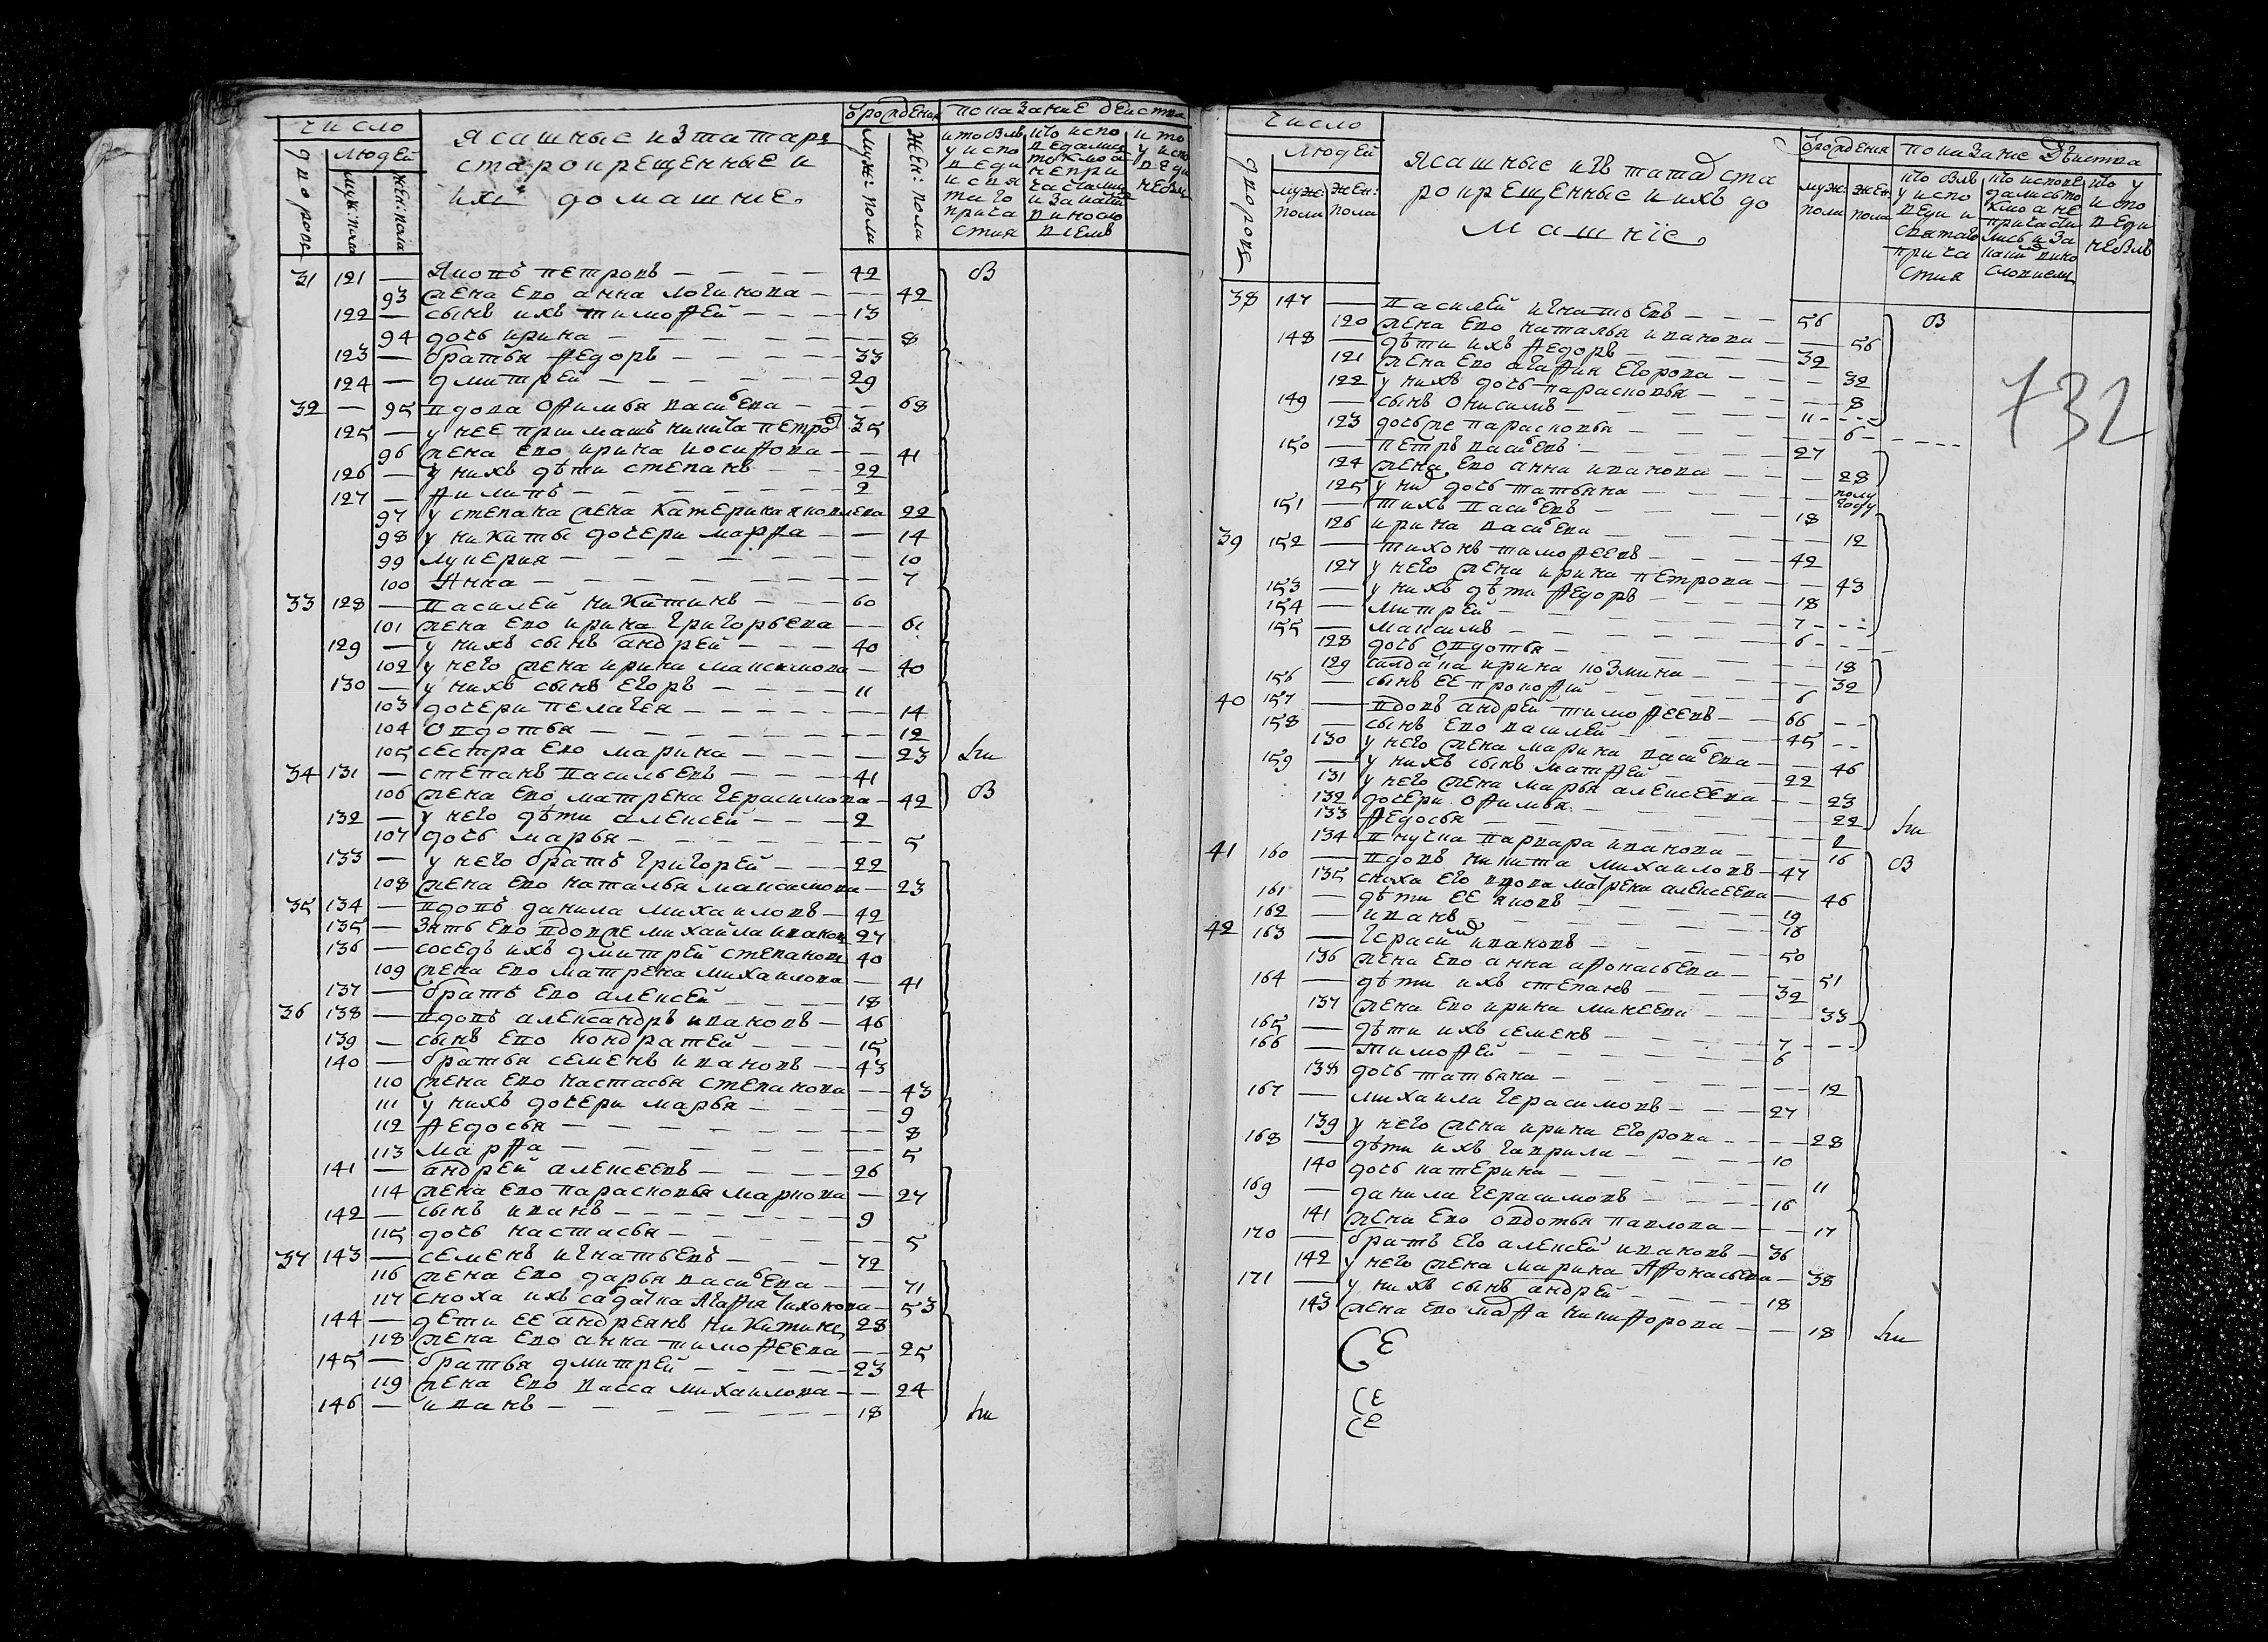 число
людей
дворовъ
муж: пола
жен: пола
Ясашные из татаръ
старокрещенные и
ихъ домашние.
от рождения
муж: пола
жен: пола
показание действа
31 121 — Яковъ петровъ — 42 Б
93 жена ево анна логинова — 42
122 — сынъ ихъ тимофей — 13
94 дочь ирина — 8
123 — братья Федоръ — 33
124 — дмитрей — 29
32 — 95 вдова Офимья васильева — 68
125 — у нее приимашъ никита петровъ 35
96 жена ево ирина иосифова — 41
126 — у нихъ дѣти степанъ — 22
127 — филипъ — 2
97 у степана жена катерина яковлева 22
98 у никиты дочери марфа — 14
99 лукерия — 10
100 Анна — 7
33 128 — василей никитинъ — 60
101 жена ево ирина григорьева — 61
129 — у нихъ сынъ андрей — 40
102 у него жена ирина максимова — 40
130 — у нихъ сынъ егоръ — 11
103 дочери пелагея — 14
104 Овдотья — 12
105 сестра ево марина — 23 ли
34 131 — степанъ васильевъ — 41
106 жена ево матрена герасимова — 42 Б
132 — у него дѣти алексей — 2
107 дочь марья — 5
133 — у него братъ григорей — 22
108 жена ево наталья максимова — 23
35 134 — вдовъ данила михаиловъ — 42
135 — зять ево вдовже михайла иванов 27
136 — соседъ ихъ дмитрей степанов 40
109 жена ево матрена михаилова — 41
137 — братъ ево алексей — 18
36 138 — вдовъ александръ ивановъ — 46
139 — сынъ ево кондратей — 15
140 — братья семенъ ивановъ — 43
110 жена ево настасья степанова — 43
111 у нихъ дочери марья — 9
112 Федосья — 8
113 Марфа — 5
141 — андрей алексеевъ — 26
114 жена ево парасковья маркова — 27
142 — сынъ иванъ — 9
115 дочь настасья — 5
37 143 — семенъ игнатьевъ — 72
116 жена ево дарья васильева — 71
117 сноха ихъ салдатка Агафия тихонова — 53
144 — дети ее андреянъ никитинъ 28
118 жена ево анна тимофеева — 25
145 — братья дмитрей — 23
119 жена ево васса михаилова — 24
146 — иванъ — 18 ли
число
людей
дворовъ
муж: пола
жен: пола
Ясашные изъ татаръ ста
рокрещенные и ихъ до
машнiе.
от рождения
муж: пола
жен: пола
показание дѣиства
732
38 147 — василей игнатьевъ — 56 Б
120 жена ево наталья иванова — 56
148 — дѣти ихъ федоръ — 32
121 жена ево агафия егорова — 32
122 у нихъ дочь парасковья — 8
149 — сынъ онисимъ — 11
123 дочь же парасковья — 6
150 — петръ васильевъ — 27
124 жена ево анна иванова — 28
125 у них дочь татьяна — полу году
151 — тихъ васильевъ — 18
126 ирина васильева — 12
39 152 — тихонъ тимофеевъ — 42
127 у него жена ирина петрова — 43
153 — у нихъ дѣти федоръ — 18
154 — митрей — 7
155 — максимъ — 6
128 дочь овдотья — 18
129 салдатка ирина козмина — 32
156 — сынъ ее прокофей — 6
40 157 — вдовъ андрей тимофеевъ — 66
158 — сынъ ево василей — 45
130 у него жена марина васильева — 46
159 — у нихъ сынъ матфей — 22
131 у него жена марья алексеева — 23
132 дочери офимья — 22
133 Федосья — 2 ли
134 внучка варвара иванова — 16
41 160 — вдовъ никита михаиловъ — 47 Б
135 сноха его вдова матрена алексеева — 46
161 — дѣти ее яковъ — 19
162 — иванъ — 16
42 163 — герасимъ ивановъ — 50
136 жена ево анна афонасьева — 51
164 — дѣти ихъ степанъ — 32
137 жена ево ирина минеева — 33
165 — дѣти ихъ семенъ — 7
166 — тимофей — 6
138 дочь татьяна — 12
167 — михаила герасимовъ — 27
139 у него жена ирина егорова — 28
168 — дѣти ихъ гаврила — 10
140 дочь катерина — 11
169 — данила герасимовъ — 16
141 жена ево овдотья павлова — 17
170 — братъ его алексей ивановъ — 36
142 у него жена марина Афонасьева — 38
171 — у нихъ сынъ андрей — 18
143 жена ево марфа никифорова — 18 ли